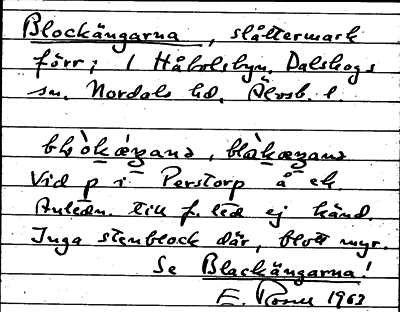 Blockängarna, slåttermark
förr; i Håbolsbyn, Dalskogs
sn. Nordals hd, Älvsb. l.
Vid p i Perstorp å ek.
Anledn. till f. led ej känd.
Inga stenblock där, blott myr.
Se Blackängarna!
E. Rosell 1963